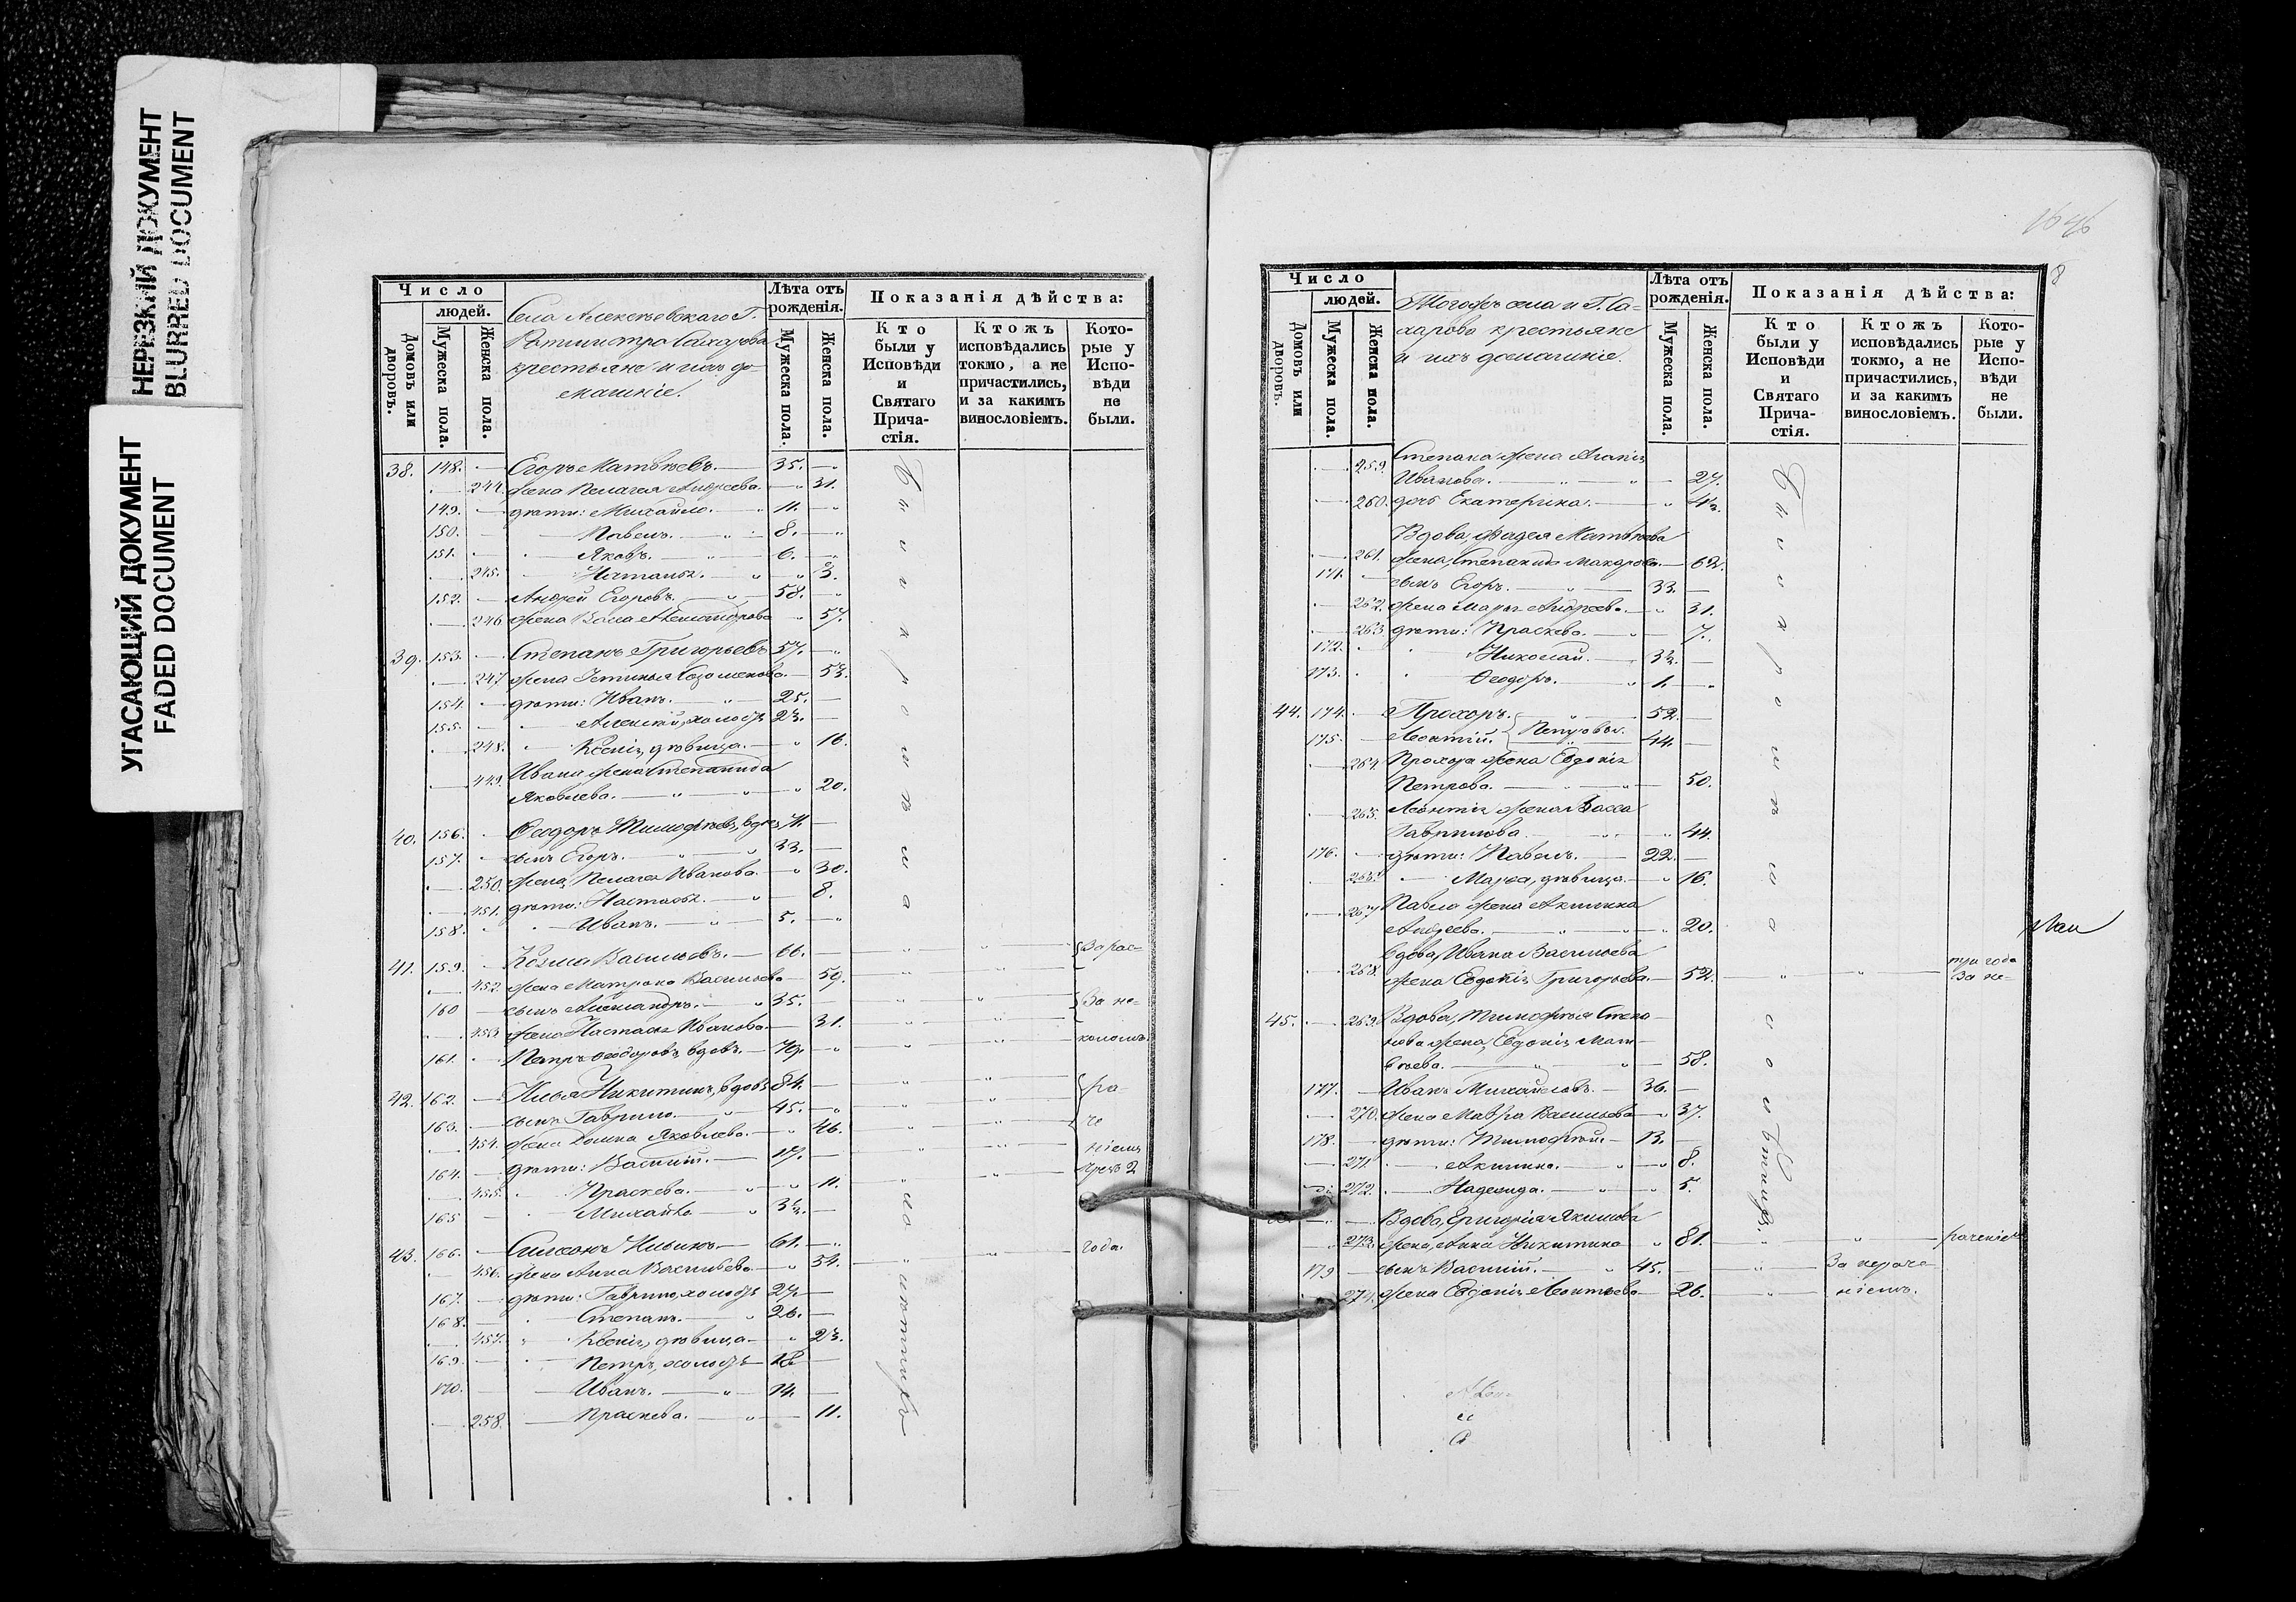 НЕРЕЗКИЙ ДОКУМЕНТ
BLURRED DOCUMENT
УГАСАЮЩИЙ ДОКУМЕНТ
FADED DOCUMENT
Число
людей.
Домовъ или дворовъ.
Мужеска пола.
Женска пола.
Села Алексѣевскаго Г.
Ротмистра Сахарова
крестьяне и ихъ до-
машніе.
Лѣта отъ рожденія.
Мужеска пола.
Женска пола.
Показанія дѣйства:
Кто были у Исповѣди и Святаго Прича-стія.
Ктожъ исповѣдались токмо, а не причастились, и за какимъ винословіемъ.
Кото-рые у Испо-вѣди не были.
38. 148. Егоръ Матвѣевъ. 35.
244. жена Пелагея Андреева. 31.
149. дѣти: Михайло. 11.
150. Павелъ. 8.
151. Яковъ. 6.
245. Наталья. 3.
152. Андрей Егоровъ. 58.
246. жена Александрова 57.
39. 153. Степанъ Григорьевъ 57.
247. жена 53.
154. дѣти: Иванъ. 25.
155. Алексѣй, холостъ 23.
248. Ксенія, дѣвица. 16.
449. Ивана жена Степанида
Яковлева. 20.
40. 156. Ѳеодоръ Тимофѣевъ, вдов. 71.
157. сынъ Егоръ. 33.
250. жена, Пелагея Иванова. 30.
451. дѣти: Настасья. 8.
158. Иванъ. 5.
41. 159. Козма Васильевъ. 66.
452. жена Матрона Васильева 59.
160 сынъ Александръ. 35.
453 жена Настасья Иванова 31.
161. Петръ Ѳеодоровъ, вдовъ. 79.
42. 162. Илья Никитинъ, вдовъ 84.
163. сынъ Гаврило. 45.
454. жена Домна Яковлева. 46.
164. дѣти: Василій. 17.
455. Праскева. 11.
165 Михайло 3½.
43. 166. Симеонъ Ильинъ 61.
456. жена Анна Васильева 54.
167. дѣти: Гаврило, холостъ 27
168. Степанъ. 26.
457. Ксенія, дѣвица 23.
169. Петръ, холостъ 18
170. Иванъ. 14.
258. Праскева. 11.
За не-
ра-
че
ніемъ
чрезъ 2
года.
8
Число
людей.
Домовъ или дворовъ.
Мужеска пола.
Женска пола.
Тогожъ села и Г. Са-
харова крестьяне
и ихъ домашніе.
Лѣта отъ рожденія.
Мужеска пола.
Женска пола.
Показанія дѣйства:
Кто были у Исповѣди и Святаго Прича-стія.
Ктожъ исповѣдались токмо, а не причастились, и за какимъ винословіемъ.
Кото-рые у Испо-вѣди не были.
259. Степана жена Агапія
Иванова. 27.
260. дочь Екатерина. 4½.
Вдова, Фадея Матвѣева
261. жена, Степанида Макарова. 62.
171. сынъ Егоръ. 33.
262. жена Марья Андреева. 31.
263 дѣти: Праскева. 7.
172. Николай. 3½.
173. Ѳеодоръ. 1.
44. 174. Прохоръ. 52.
175. Леонтій. Петровы. 44.
264. Прохора жена Евдокія
Петрова. 50.
265. Леонтія жена Васса
Гаврилова. 44.
176. дѣти: Павелъ. 22.
Марѳа, дѣвица. 16.
267. Павла жена Акилина
Андреева. 20.
Вдова, Ивана Васильева
268. жена Евдокія Григорьева. 52. три года
За не-
45. 269. Вдова, Тимофѣя Степа-
нова жена, Евдокія Мат-
вѣева. 58.
177. Иванъ Михайловъ. 36.
270. жена Мавра Васильева 37.
178. дѣти: Тимофѣй. 13.
271. Акилина. 8.
272. Надежда. 5.
Вдова, Григорія Якимова
273. жена, Анна Никитина 81. раченіемъ
179 сынъ Василій. 45. За нераче-
274. жена Евдокія Леонтьева 26. ніемъ.